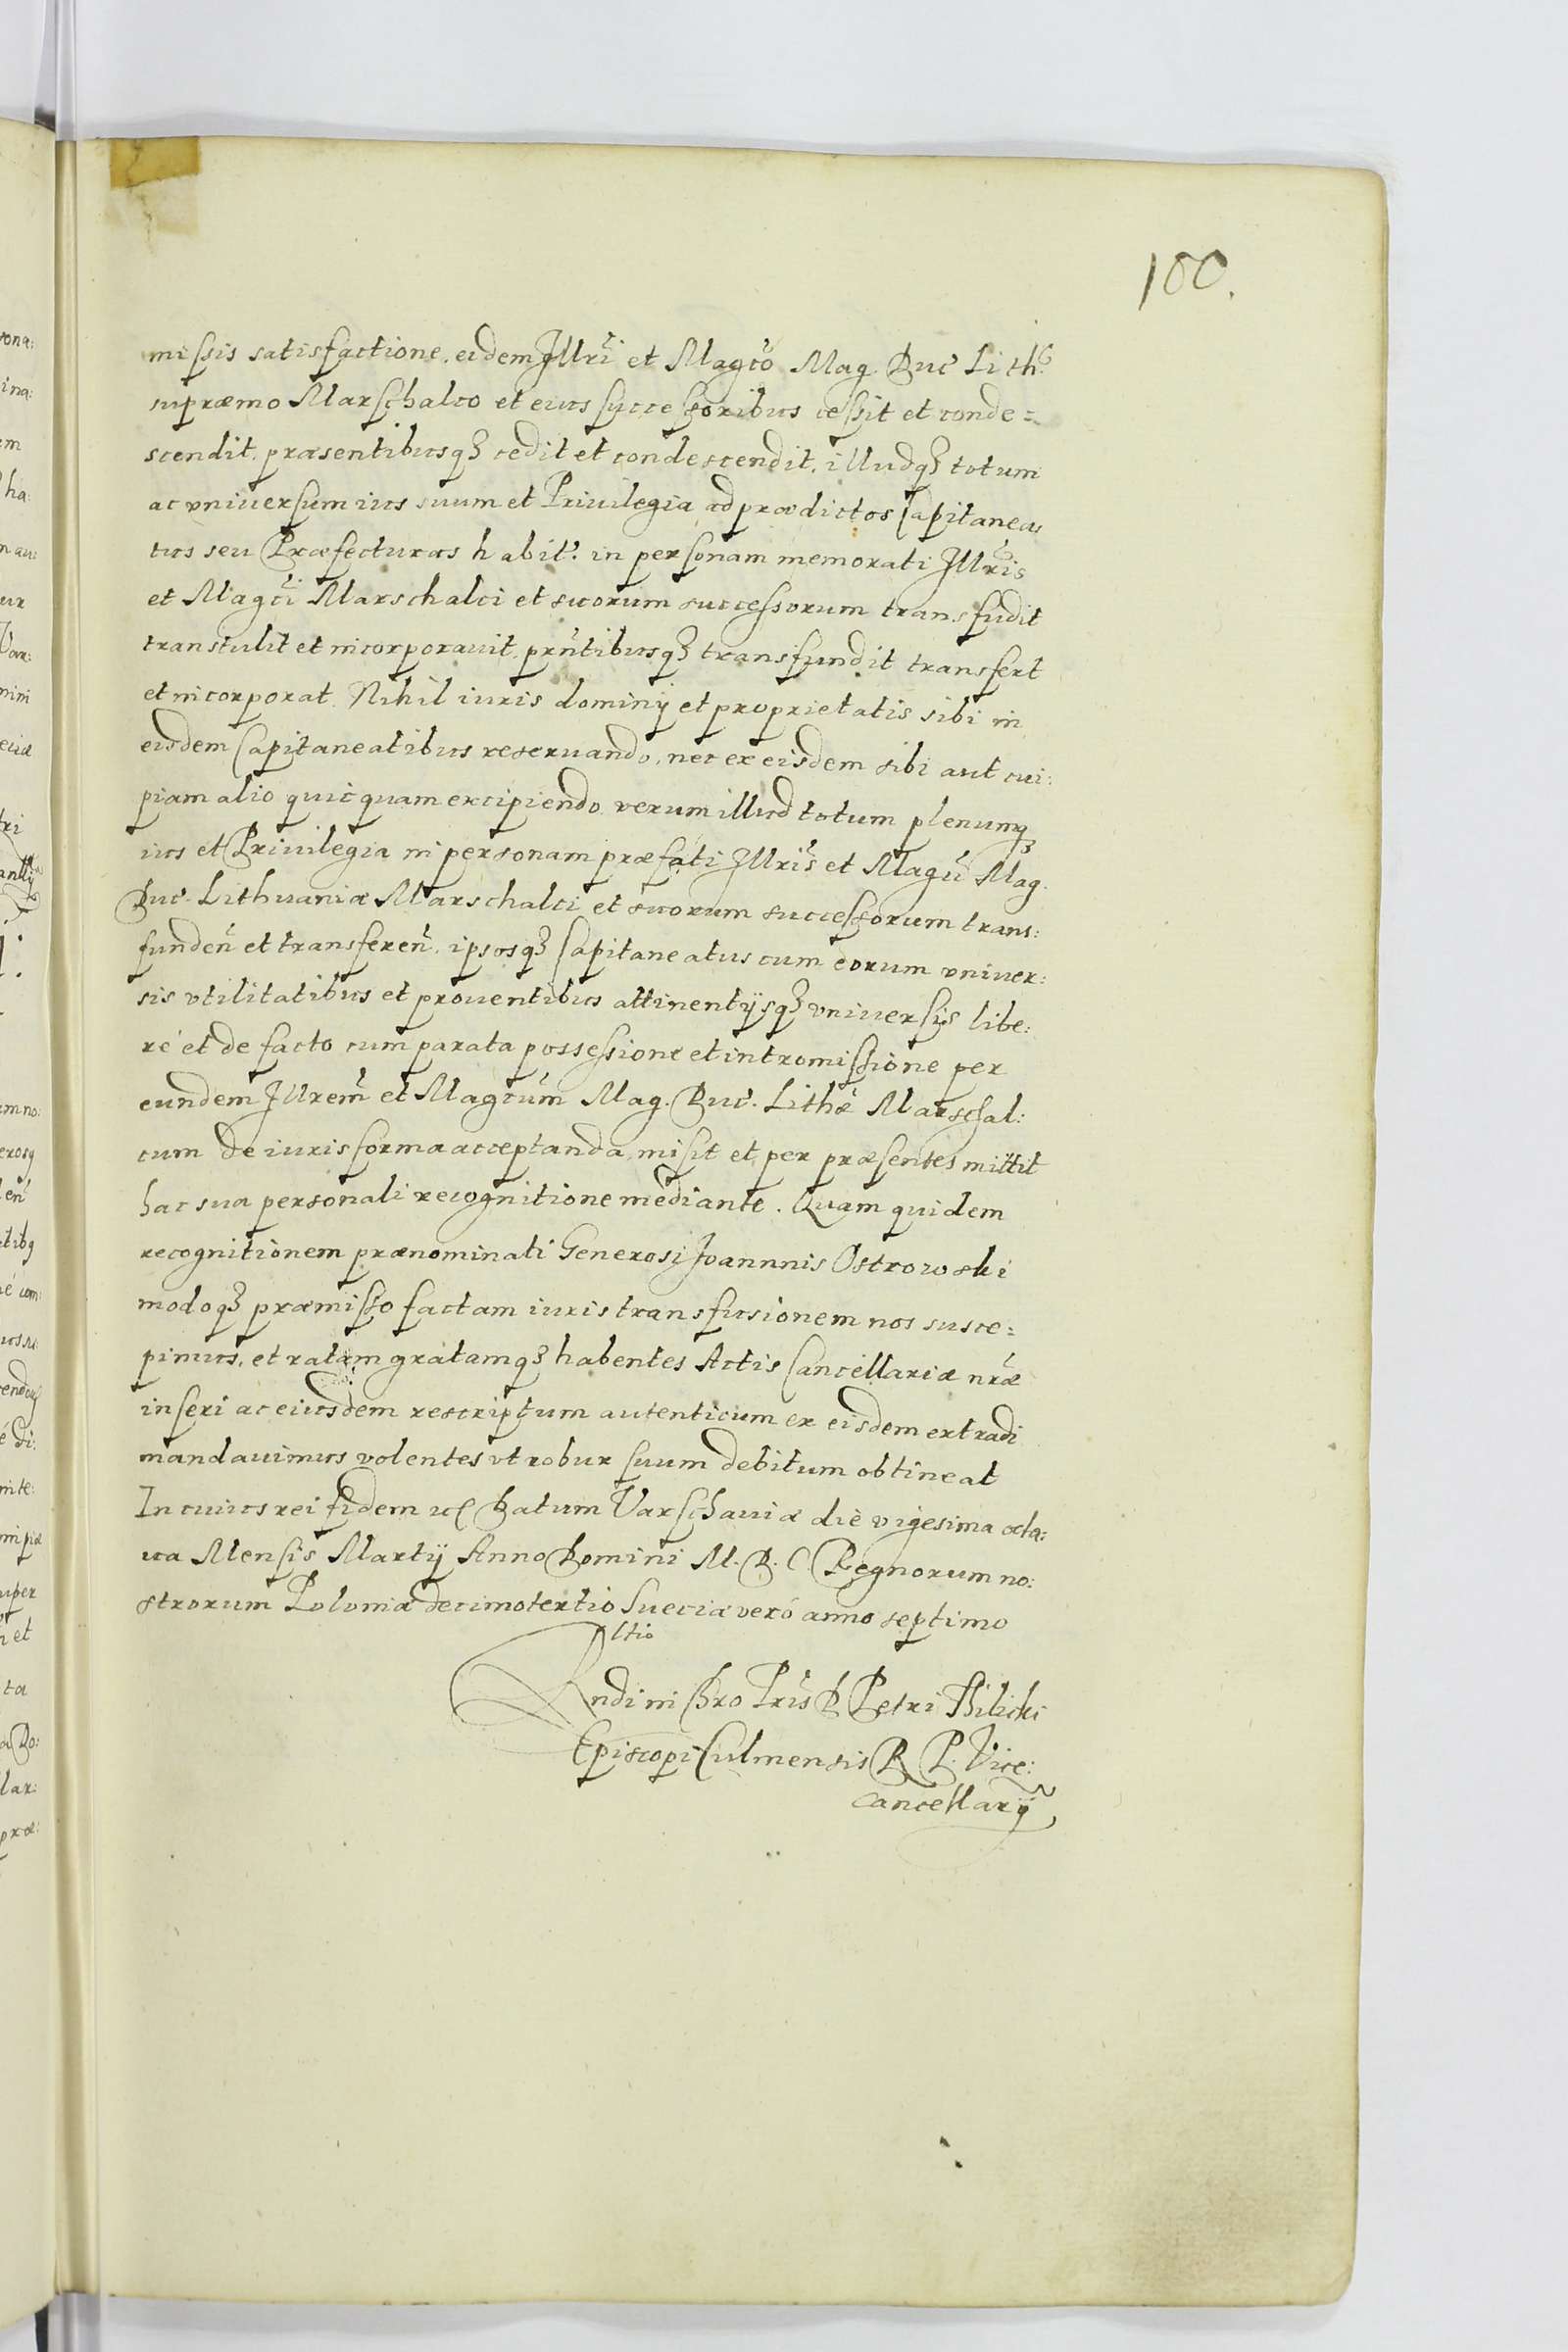 100.
missis satisfactione, eidem Illri et Magco Mag. Duc Lith.
supræmo Marschalco et eius successoribus cessit et conde=
scendit, præsentibusq3 cedit et condescendit, illudq3 totum
ac vniuersum ius suum et Priuilegia ad prædictos Capitanea
tus seu Præfecturas habit. in personam memorati Illris
et Magci Marschalci et suorum successorum transfudit
transtulit et incorporauit, prntibusq3 transfundit transfert
et incorporat Nihil iuris dominij et proprietatis sibi in
eisdem Capitaneatibus reseruando, nec ex eisdem sibi aut cui:
piam alio quicquam excipiendo verum illud totum plenumq3
ius et Priuilegia in personam præfati Illris et Magci Mag.
Duc. Lithuaniæ Marschalci et suorum successorum trans:
funden et transferen. ipsosq3 Capitaneatus cum eorum vniuer:
sis vtilitatibus et prouentibus attinentijsq3 vniuersis libe:
ré et de facto cum parata possessione et intromissione per
eundem Illrem et Magcum Mag. Duc. Lithæ Marschal:
cum de iuris forma acceptanda, misit et per præsentes mittit
hac sua personali recognitione mediante. Quam quidem
recognitionem prænominati Generosi Joannnis Ostrowski
modoq3 præmisso factam iuris transfusionem nos susce=
pimus, et ratam gratamq3 habentes Actis Cancellariæ nræ
inseri ac eiusdem rescriptum autenticum ex eisdem extradi
mandauimus volentes vt robur suum debitum obtineat
In cuius rei fidem etc Datum Varschauiæ die vigesima octa:
ua Mensis Martij Anno Domini M. D. C Regnorum no:
strorum Poloniæ decimotertio Sueciæ veró anno septimo
Rltio
Rndi in Chro Pris D Petri Tilicki
Episcopi Culmensis R P. Vice:
cancellarij